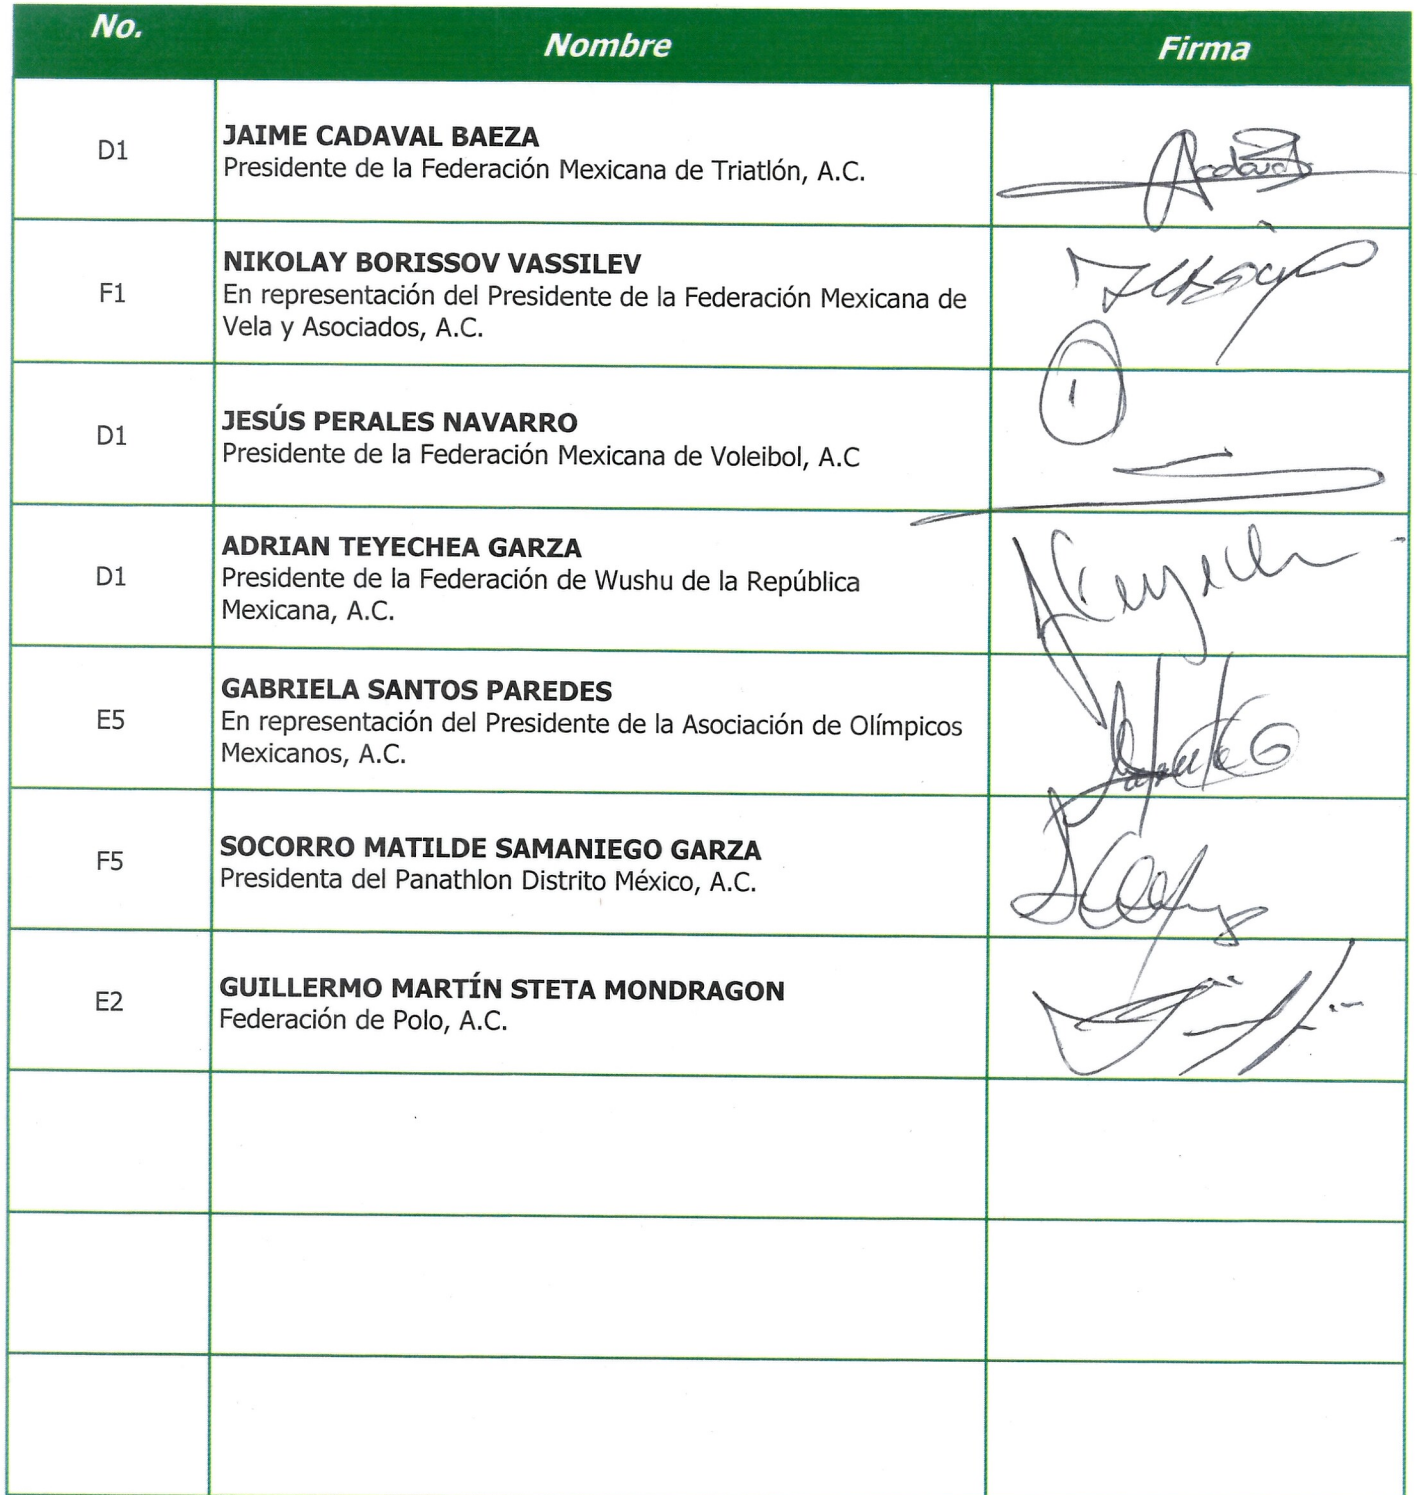 No. Nombre Firma
D1
JAIME CADAVAL BAEZA
Presidente de la Federación Mexicana de Triatlón, A.C.
F1
NIKOLAY BORISSOV VASSILEV
En representación del Presidente de la Federación Mexicana de
Vela y Asociados, A.C.
D1
JESÚS PERALES NAVARRO
Presidente de la Federación Mexicana de Voleibol, A.C
D1
ADRIAN TEYECHEA GARZA
Presidente de la Federación de Wushu de la República
Mexicana, A.C.
E5
GABRIELA SANTOS PAREDES
En representación del Presidente de la Asociación de Olímpicos
Mexicanos, A.C.
F5
SOCORRO MATILDE SAMANIEGO GARZA
Presidenta del Panathlon Distrito México, A.C.
E2
GUILLERMO MARTÍN STETA MONDRAGON
Federación de Polo, A.C.